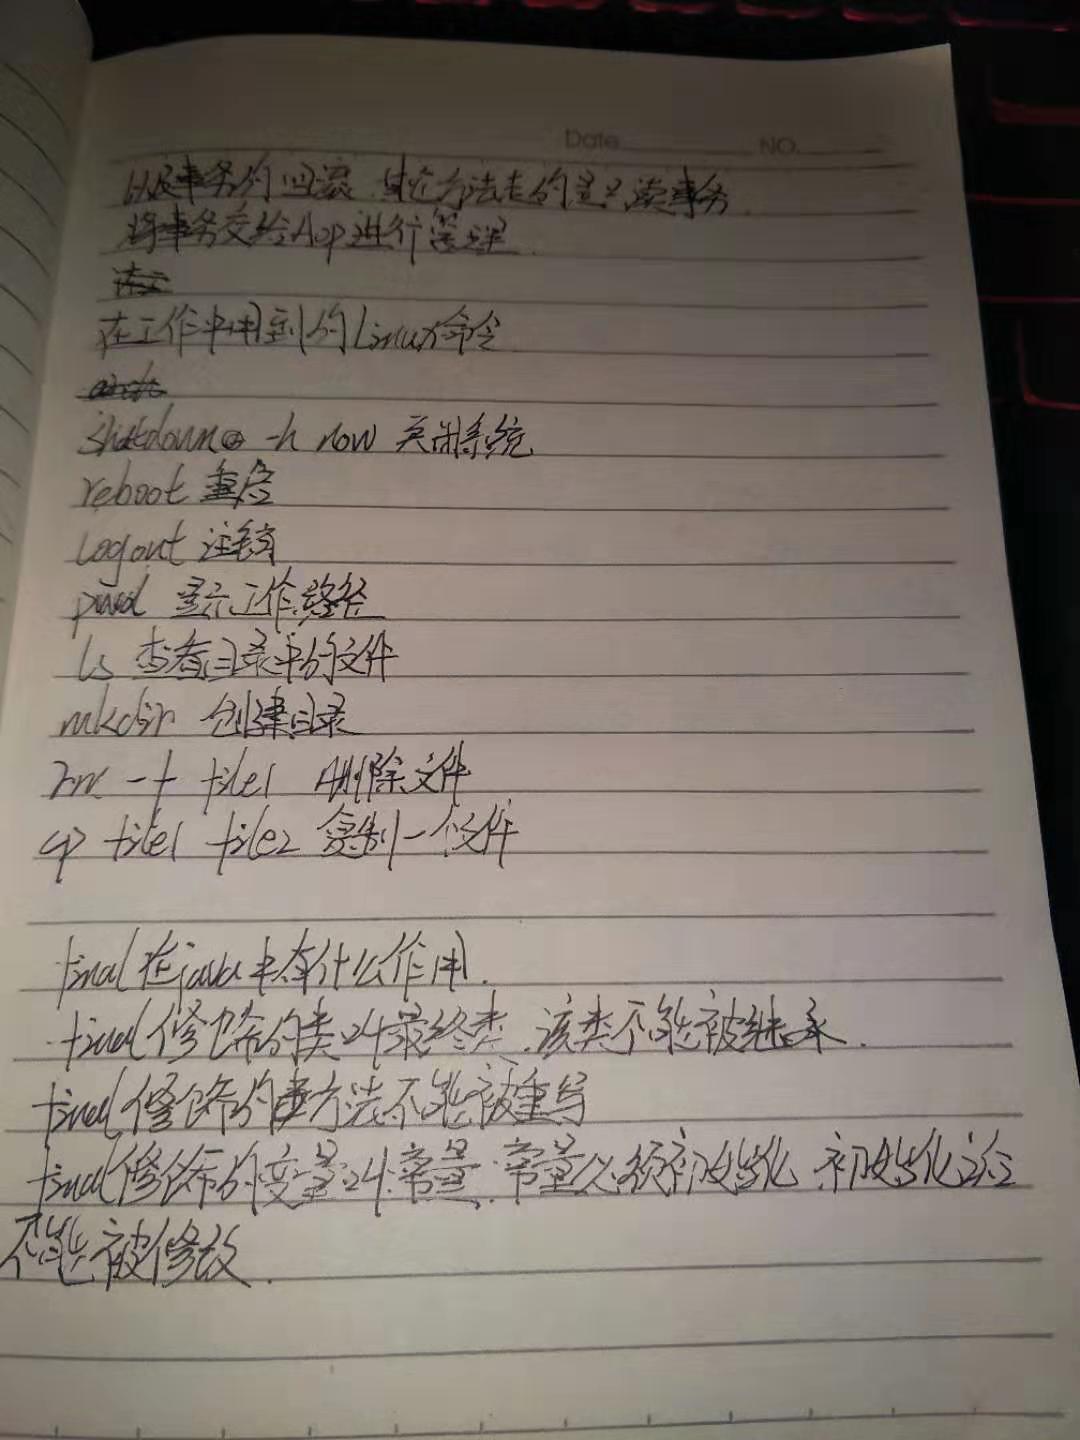 Date NO.
以及事务的回滚 其他方法走的是只读事务.
将事务交给Aop进行管理.
在工作中用到的Linux命令
shutdown -h now 关闭系统
reboot 重启
logout 注销
pwd 显示工作路径
ls 查看目录中的文件
mkdir 创建目录
rm -f file1 删除文件
cp file1 file2 复制一个文件
final在java中有什么作用.
final修饰的类叫最终类.该类不能被继承.
final修饰的方法不能被重写
final修饰的变量叫常量.常量必须初始化 初始化之后
不能被修改.